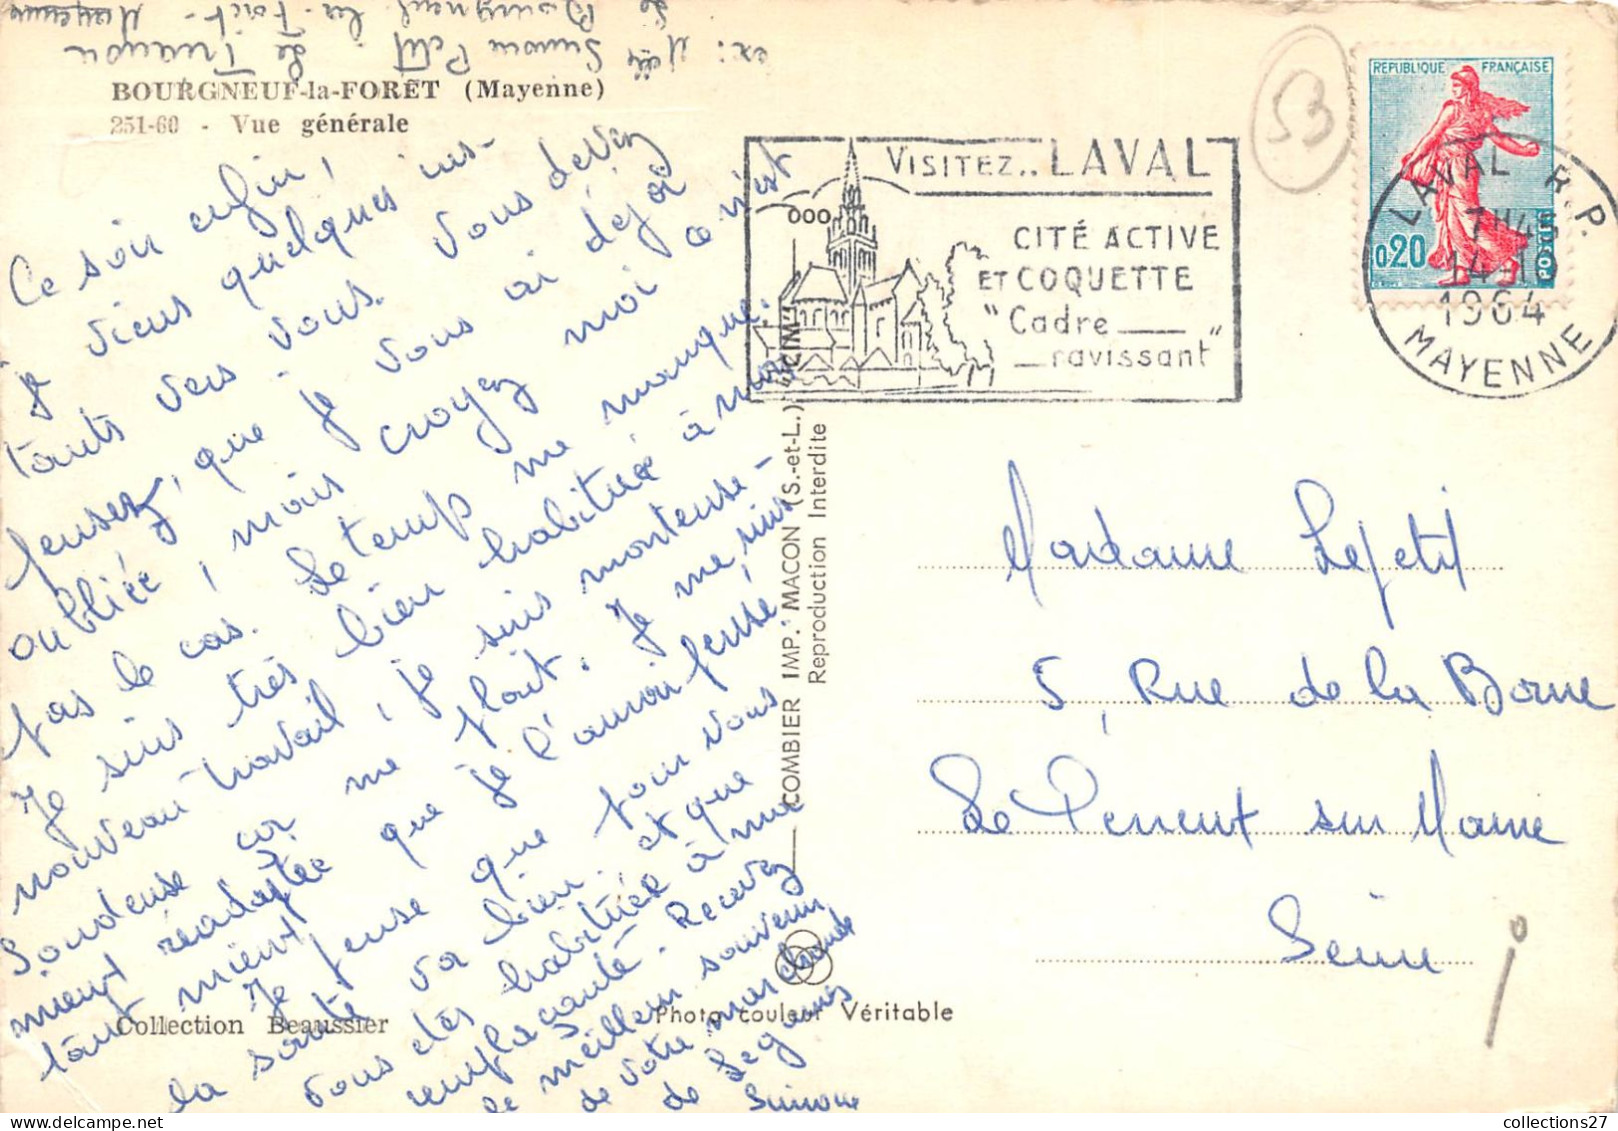 ex: Melle Simone Petit Le Tremon
Le Bourgneuf la Forêt - Mayenne
BOURGNEUF-la-FORÊT (Mayenne)
251-60 - Vue générale
Ce soir enfin,
je viens quelques ins-
tants vers vous. Vous devez
pensez, que je vous ai déjà
oubliée, mais croyez moi ce n'est
pas le cas. Le temps me manque.
Je suis très bien habituée à mon
nouveau travail, je suis monteuse-
soudeuse ça me plaît. Je me suis
mieux réadaptée que je l'aurai pensé,
tant mieux
Je pense que pour vous
la santé va bien, et que
vous etés habituée à une
remplacante. Recevez
le meilleur souvenir
de votre marchande
de Légumes
Simone
VISITEZ.. LAVAL
CITÉ ACTIVE
ET COQUETTE
"Cadre
ravissant"
53
RÉPUBLIQUE FRANÇAISE
0,20
POSTES
LAVAL R.P.
7H45
14-10
1964
MAYENNE
Madame Lepetit
5, Rue de la Borne
Le Perreux sur Marne
Seine
"CIM"
COMBIER IMP. MACON (S.-et-L.)
Reproduction Interdite
Collection Beaussier
Photo couleur Véritable
collections27